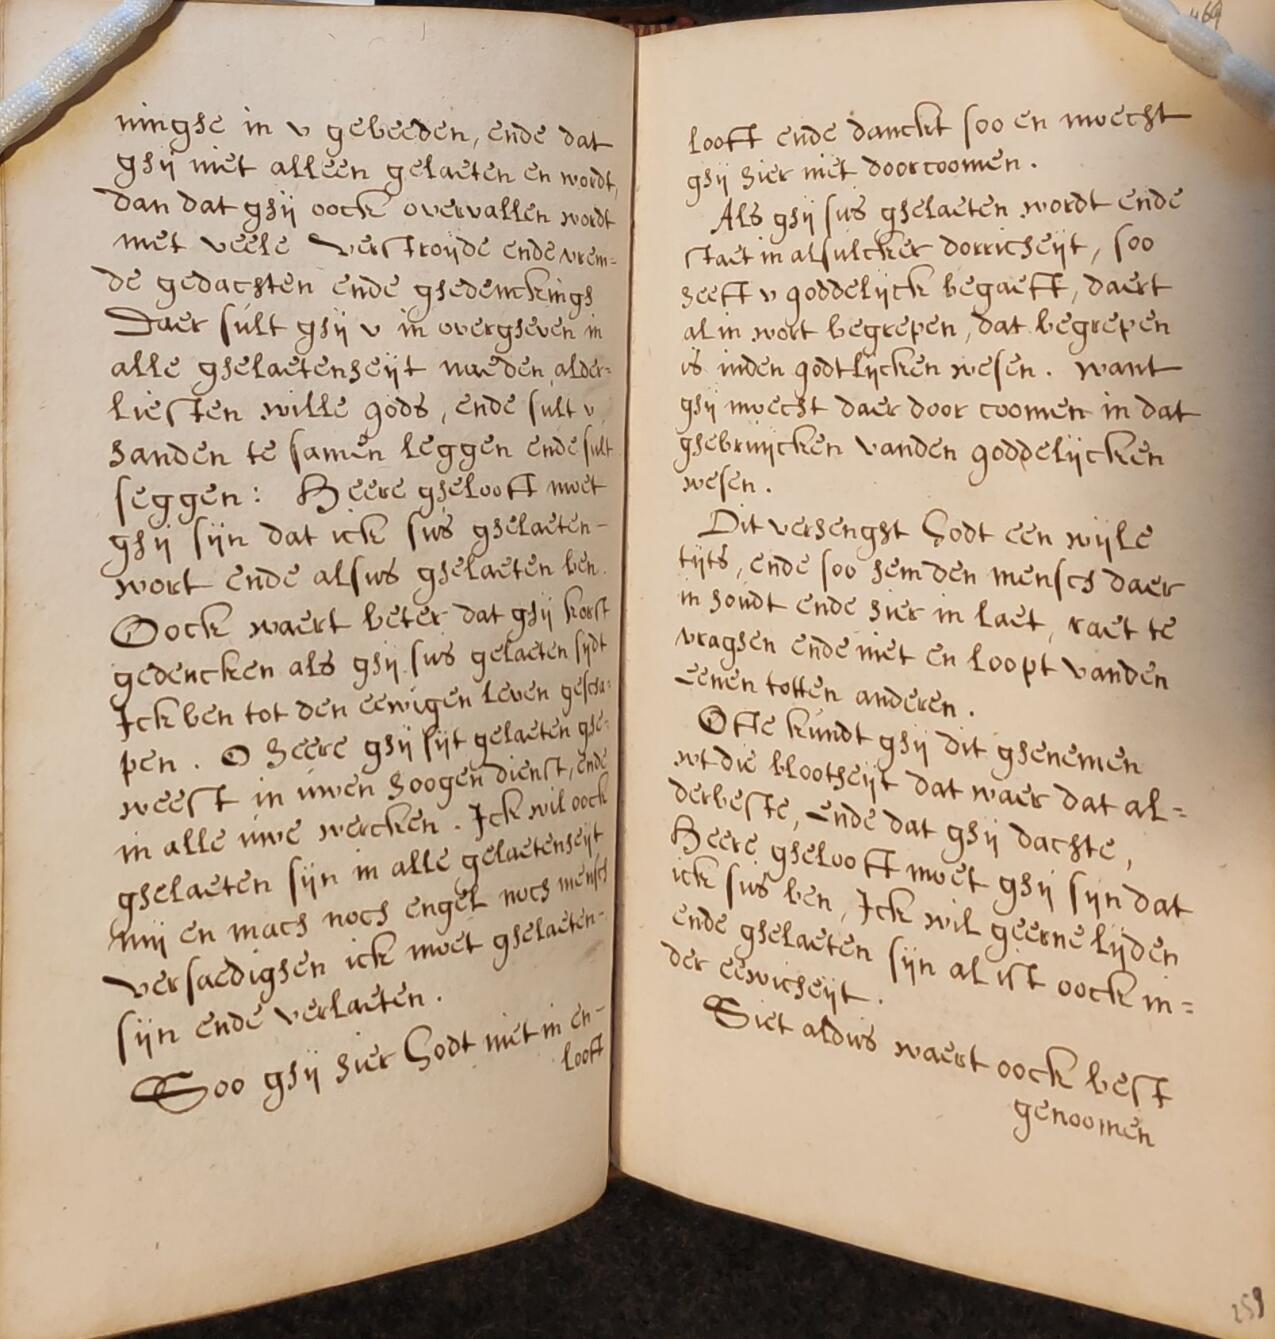 ninghe in v gebeeden, ende dat
ghij niet alleen gelaeten en wordt,
dan dat ghij oock overvallen wordt
met veele verstroijde ende vrem=
de gedachten ende ghedenckings
Daer sult ghij v in overgheven in
alle ghelaetenheijt naeden alder=
liesten wille gods, ende sult v
handen te samen leggen ende sult
seggen: Heere ghelooft moet
ghij sijn dat ick sus ghelaeten-
wort ende alsus ghelaeten ben.
Oock waert beter dat ghij korst
gedencken als ghij sus gelaeten sijdt
Ick ben tot den eewigen leven gescha=
pen. O heere ghij sijt gelaeten ghe=
weest in uwen hoogen dienst, ende
in alle uwe wercken. Ick wil oock
ghelaeten sijn in alle gelaetenheijt
mij en mach noch engel noch mensch
verhaedighen ick moet ghelaeten-
sijn ende verlaeten.
Soo ghij hier Godt niet in en-
looft
469
looft ende danckt soo en moecht
ghij hier niet doorcoomen.
Als ghij sus ghelaeten wordt ende
staet in alsulcker dorricheijt, soo
heeft v goddelijck begaeft, daert
al in wort begrepen, dat begrepen
is inden godtlijcken wesen. want
ghij moecht daer door coomen in dat
ghebruijcken vanden goddelijcken
wesen.
Dit verhenght Godt een wijle
tijts, ende soo hem den mensch daer
in houdt ende hier in laet, raet te
vraghen ende niet en loopt vanden
eenen totten anderen.
Ofte kundt ghij dit ghenemen
wt die blootheijt dat waer dat al=
derbeste, ende dat ghij dachte,
Heere ghelooft moet ghij sijn dat
ick sus ben, Ick wil geerne lijden
ende ghelaeten sijn al ist oock in=
der eewicheijt.
Siet aldus waert oock best
genoomen
259